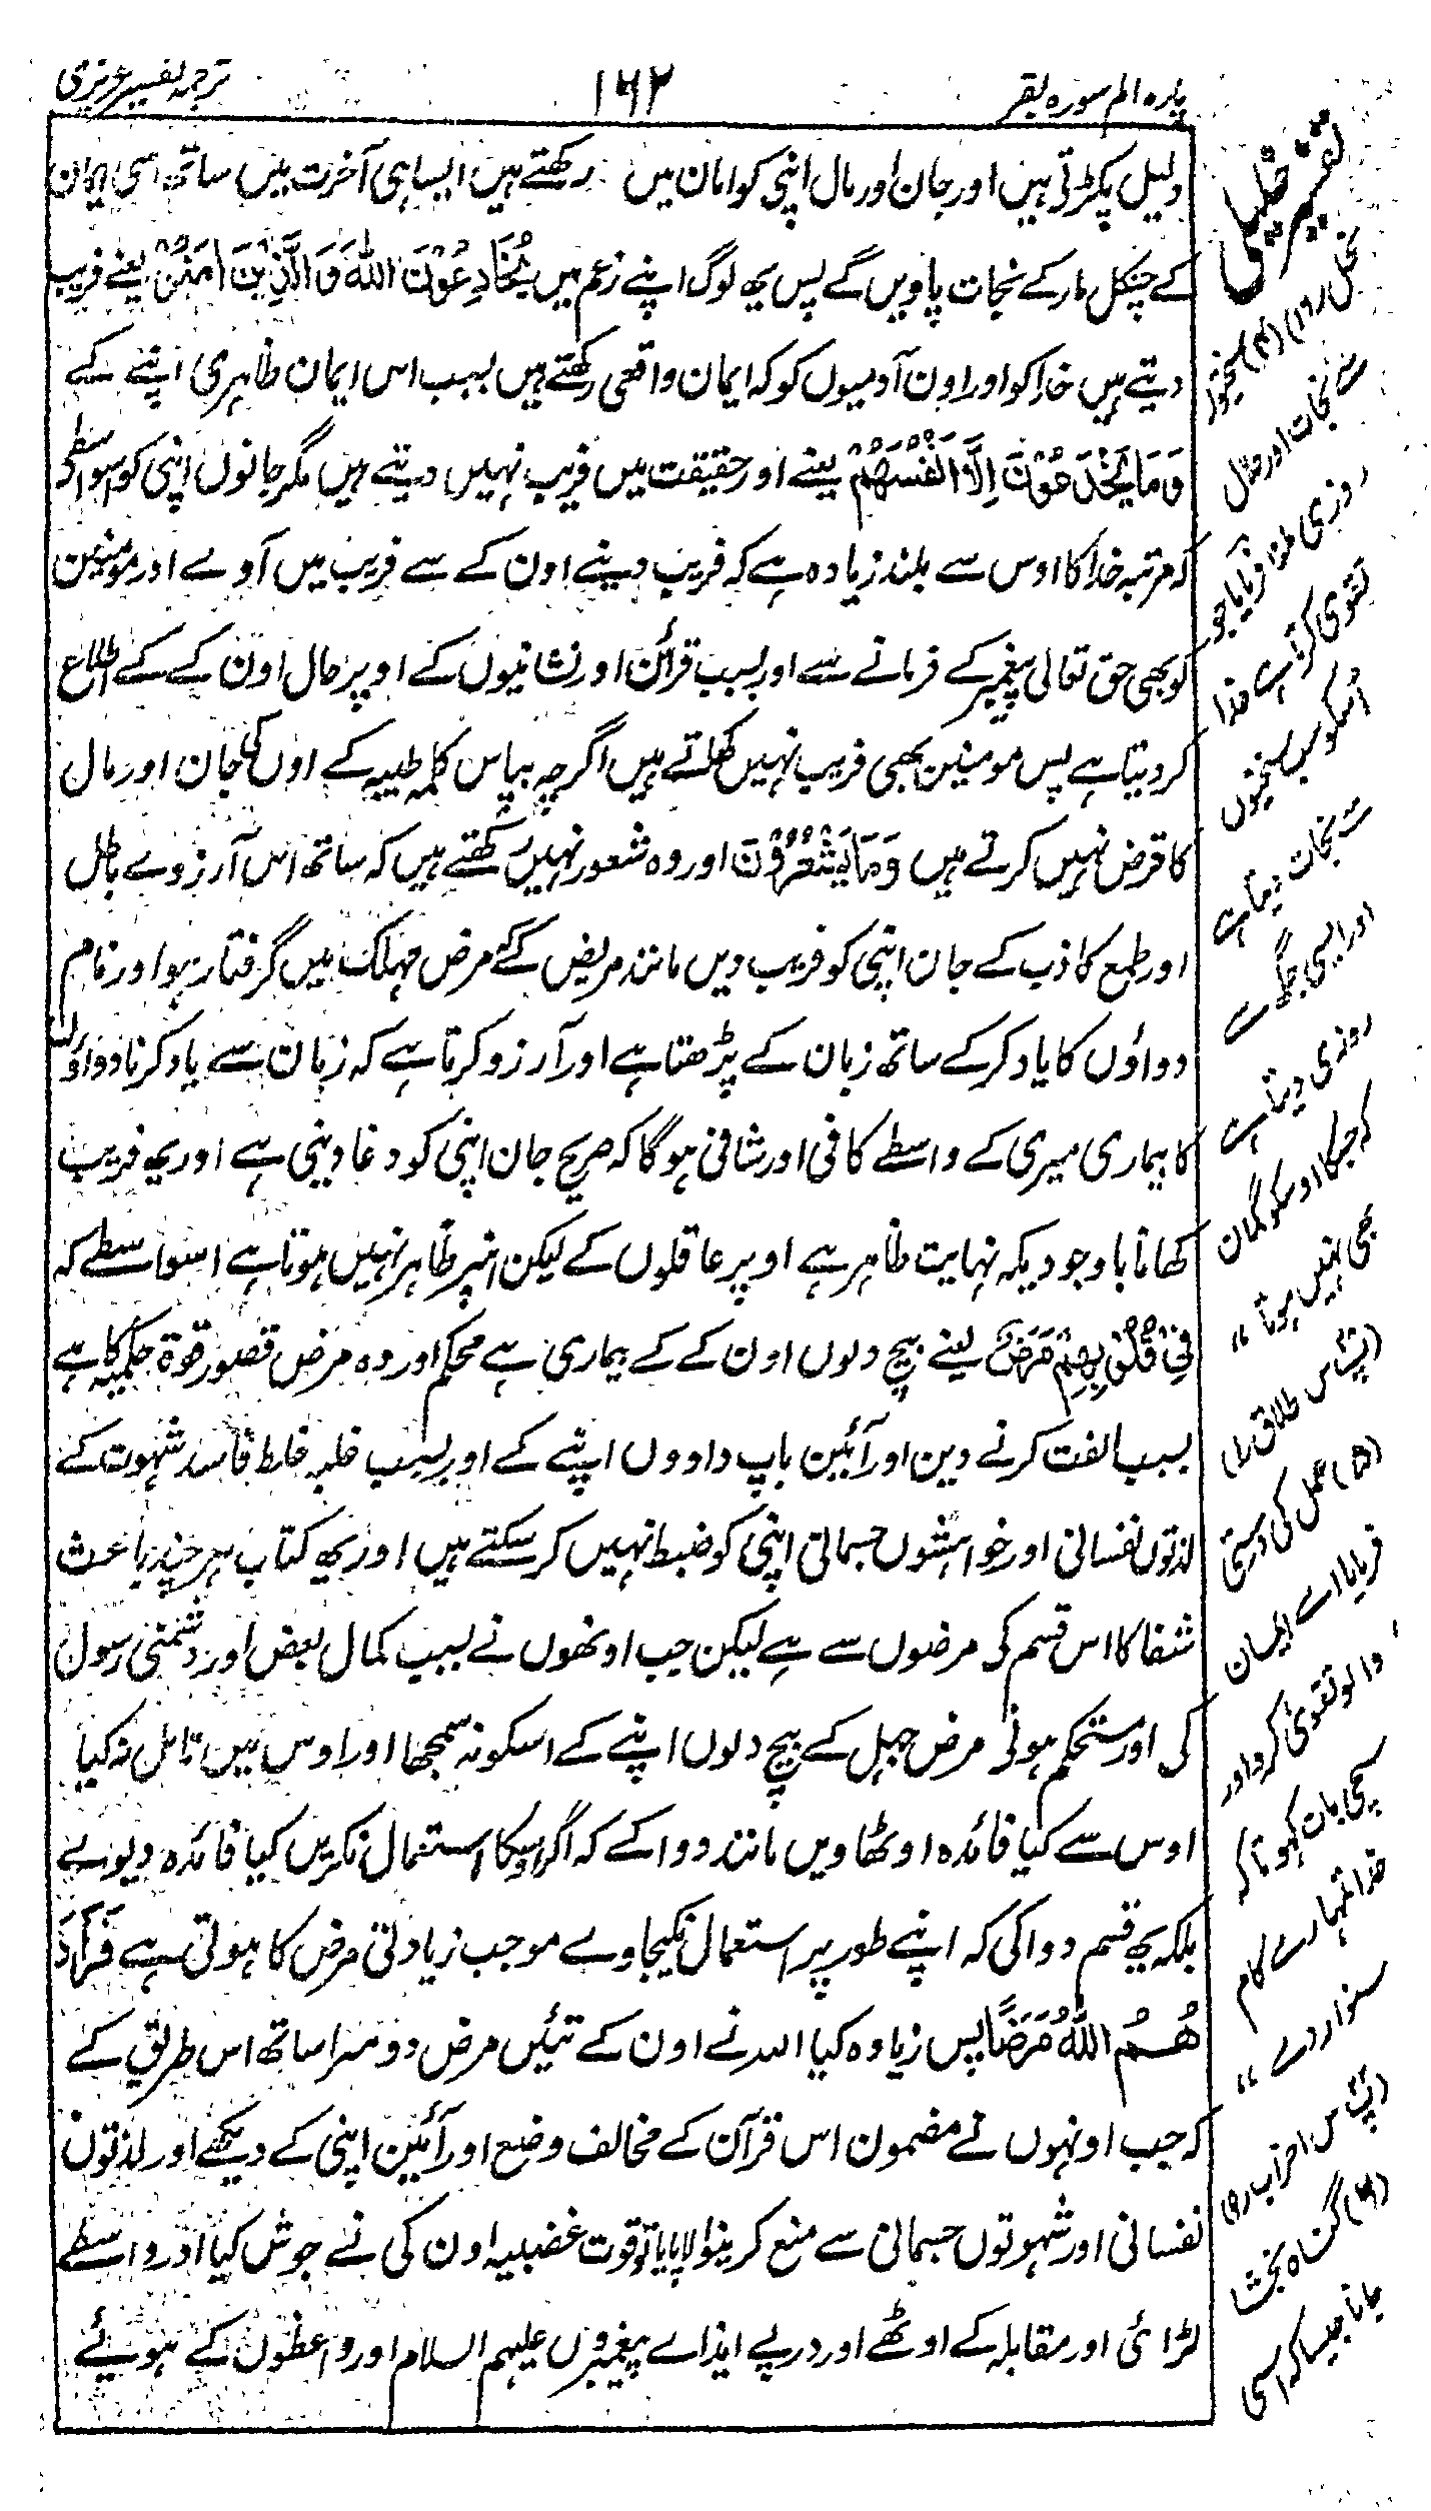 پارہ الم سورہ بقر
۱۶۲
ترجمہ تفسیر عزیزی
دلیل پکڑتی ہیں اور جان اور مال اپنی کو امان میں رکھتے ہیں ایسا ہی آخرت میں ساتھ اسی ایمان
کے چنگل مار کے نجات پاویں گے پس یہ لوگ اپنے زعم میں یُخَادِعُوْنَ اللّٰهَ وَالَّذِیْنَ اٰمَنُوْا یعنے فریب
دیتے ہیں خدا کو اور اون آدمیوں کو کہ ایمان واقعی رکھتے ہیں بسبب اس ایمان ظاہری اپنے کے
وَمَا یَخْدَعُوْنَ اِلَّا اَنْفُسَهُمْ یعنے اور حقیقت میں فریب نہیں دیتے ہیں مگر جانوں اپنی کو اسواسطے
کہ مرتبہ خدا کا اوس سے بلند زیادہ ہے کہ فریب دینے اون کے سے فریب میں آوے اور مومنین
کو بھی حق تعالی پیغمبر کے فرمانے سے اور بسبب قرائن اور نشانیوں کے اوپر حال اون کے کے اطلاع
کر دیتا ہے پس مومنین بھی فریب نہیں کھاتے ہیں اگرچہ بپاس کلمہ طیبہ کے اون کی جان اور مال
کا قرض نہیں کرتے ہیں وَمَا یَشْعُرُوْنَ اور وہ شعور نہیں رکھتے ہیں کہ ساتھ اس آرزوے باطل
اور طمع کاذب کے جان اپنی کو فریب دیں مانند مریض کے مرض مہلک میں گرفتار ہو اور نام
دواؤں کا یاد کر کے ساتھ زبان کے پڑھتا ہے اور آرزو کرتا ہے کہ زبان سے یاد کرنا دواؤں
کا بیماری میری کے واسطے کافی اور شافی ہوگا کہ صریح جان اپنی کو دغا دینی ہے اور یہ فریب
کھانا باوجودیکہ نہایت ظاہر ہے اوپر عاقلوں کے لیکن انپر ظاہر نہیں ہوتا ہے اسواسطے کہ
فِیْ قُلُوْبِهِمْ مَرَضٌ یعنے بیچ دلوں اون کے کے بیماری ہے محکم اور وہ مرض قصور قوۃ حکمیہ کا ہے
بسبب الفت کرنے دین اور آئین باپ دادوں اپنے کے اور بسبب غلبہ خلط فاسد شہوت کے
لذتوں نفسانی اور خواہشوں جسمانی اپنی کو ضبط نہیں کر سکتے ہیں اور یہ کتاب ہر چند باعث
شفا کا اس قسم کی مرضوں سے ہے لیکن جب اونھوں نے بسبب کمال بعض اور دشمنی رسول
کی اور مستحکم ہونی مرض جہل کے بیچ دلوں اپنے کے اسکو نہ سمجھا اور اوس میں تامل نہ کیا
اوس سے کیا فائدہ اوٹھاویں مانند دوا کے کہ اگر اوسکا استعمال نکریں کیا فائدہ دیوے
بلکہ یہ قسم دوا کی کہ اپنے طور پر استعمال نکیجاوے موجب زیادتی مرض کا ہوتی ہے فَزَادَ
هُمُ اللّٰهُ مَرَضًا پس زیادہ کیا اللہ نے اون کے تئیں مرض دوسرا ساتھ اس طریق کے
کہ جب اونہوں نے مضمون اس قرآن کے مخالف وضع اور آئین اپنی کے دیکھے اور لذتوں
نفسانی اور شہوتوں جسمانی سے منع کرینوالا پایا تو قوت غضبیہ اون کی نے جوش کیا اور واسطے
لڑائی اور مقابلہ کے اوٹھے اور درپے ایذاے پیغمبروں علیہم السلام اور واعظوں کے ہوئے
تقریر خلیلی
نحل (۴) سختیوں
سے نجات اور حلال
روزی ملنا فرمایا جو
تقوی کرتا ہے خدا
اسکو سب سختیوں
سے نجات دیتا ہے
اور ایسی جگہ سے
روزی دیتا ہے
کہ جسکا اوسکو گمان
بھی نہیں ہوتا ״
(پ س طلاق ع)
(۵) عمل کی درستی
فرمایا اے ایمان
والو تقوی کرو اور
سچی بات کہو تاکہ
خدا تمہارے کام
سنوار دے ״
(پ س احزاب ع۹)
(۶) گناہ بخشا
جانا جیسا کہ اسی